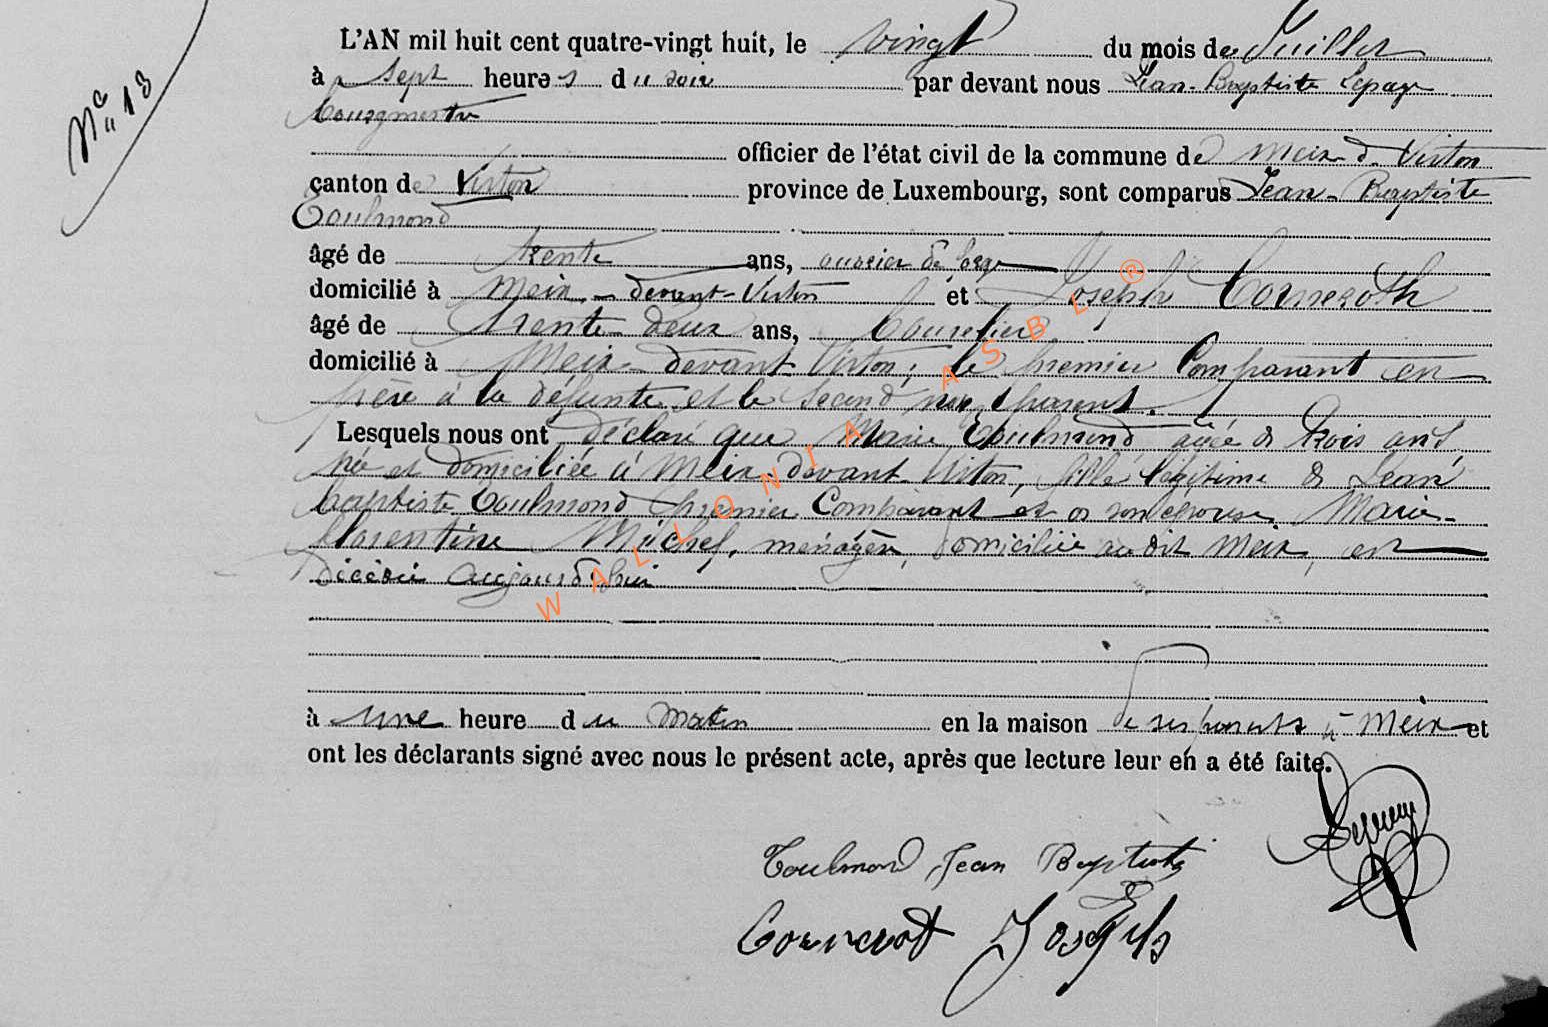 N° 13
L'AN mil huit cent quatre-vingt huit, le vingt du mois de Juillet
à sept heures du soir par devant nous Jean-Baptiste Lepage
bourgmestre
officier de l'état civil de la commune de Meix d. Virton
canton de Virton province de Luxembourg, sont comparus Jean-Baptiste
Toulmond
âgé de trente ans, ouvrier de forge
domicilié à Meix-devant-Virton et Joseph Corneroth
âgé de trente deux ans,
domicilié à Meix-devant Virton; le premier Comparant en
père à la défunte et le second non parent.
Lesquels nous ont déclaré que Marie Toulmond agée de trois ans,
née et domiciliée à Meix devant Virton, fille légitime de Jean
baptiste Toulmond premier Comparant et de son épouse Marie-
florentine Michel, ménagère, domiciliée au dit Meix, est
décédée aujourd'hui
à une heure du Matin en la maison de ses parents à Meix et
ont les déclarants signé avec nous le présent acte, après que lecture leur en a été faite.
Toulmond Jean Baptiste
Cornerott Joseph
WALLONIA ASBL ®